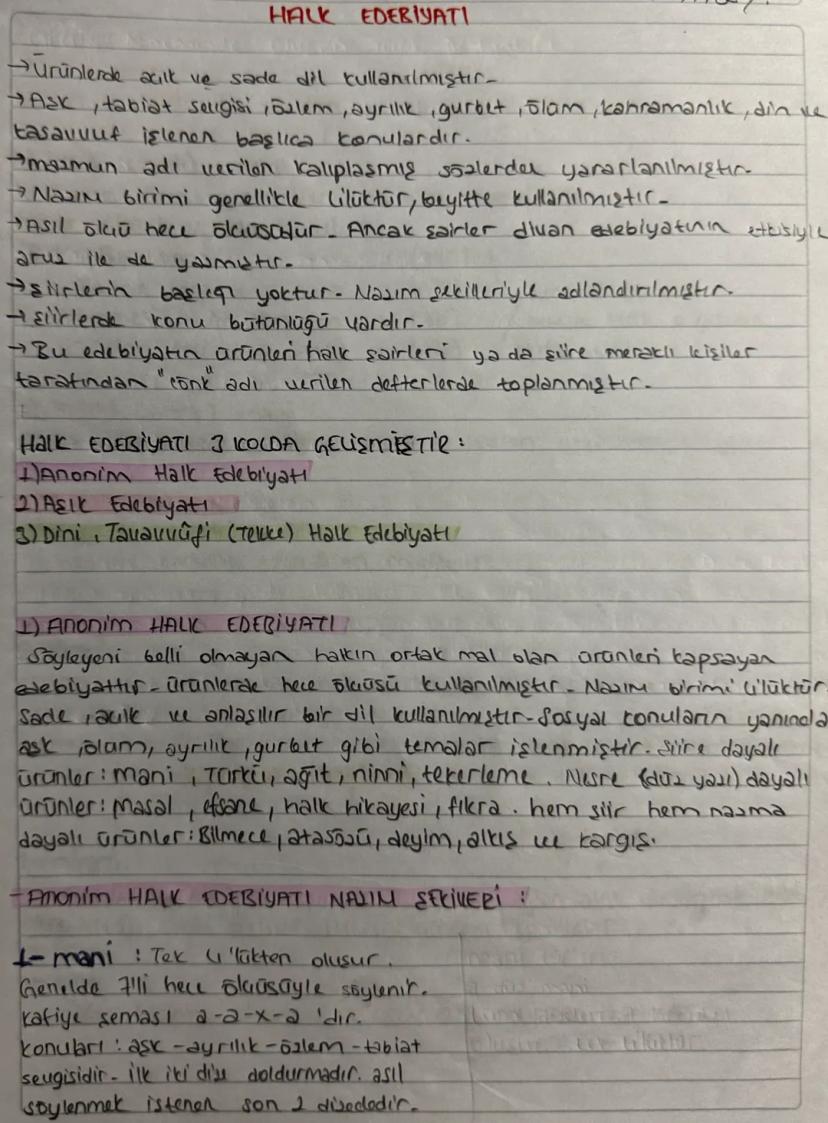 HALK EDEBİYATI
→Ürünlerde açık ve sade dil kullanılmıştır-
→Aşk, tabiat sevgisi, özlem, ayrılık, gurbet, ölüm, kahramanlık, din ve
tasavvuf işlenen başlıca konulardır.
→mazmun adı verilen kalıplaşmış sözlerden yararlanılmıştır.
→Nazım birimi genellikle 4'lüktür, beyitte kullanılmıştır-
→Asıl ölçü hece ölçüsüdür- Ancak şairler divan edebiyatının etkisiyle
aruz ile de yazmıştır-
→şiirlerin başlığı yoktur- Nazım şekilleriyle adlandırılmıştır.
→şiirlerde konu bütünlüğü vardır-
→Bu edebiyatın ürünleri halk şairleri ya da şiire meraklı kişiler
tarafından "cönk" adı verilen defterlerde toplanmıştır-
HALK EDEBİYATI 3 KOLDA GELİŞMİŞTİR:
1)Anonim Halk Edebiyatı
2)Aşık Edebiyatı
3)Dini, (Tekke) Halk Edebiyatı
1) Anonim HALK EDEBİYATI
Söyleyeni belli olmayan halkın ortak mal olan ürünleri kapsayan
edebiyattır- Ürünlerde hece ölçüsü kullanılmıştır- Nazım birimi 4'lüktür
Sade, açık ve anlaşılır bir dil kullanılmıştır- Sosyal konuların yanında
aşk, ölüm, ayrılık, gurbet gibi temalar işlenmiştir. Şiire dayalı
ürünler: mani, Türkü, ağıt, ninni, tekerleme. Nesre (düz yazı) dayalı
ürünler: masal, efsane, halk hikayesi, fıkra. hem şiir hem nazma
dayalı ürünler: Bilmece, atasözü, deyim, alkış ve kargış.
-Anonim HALK EDEBİYATI NAZIM ŞEKİLLERİ:
1- mani: Tek 4'lükten oluşur.
Genelde 7'li hece ölçüsüyle söylenir.
Kafiye şeması a-a-x-a 'dır.
konuları: aşk-ayrılık-özlem-tabiat
sevgisidir- ilk iki dize doldurmadır. asıl
söylenmek istenen son 2 dizededir-